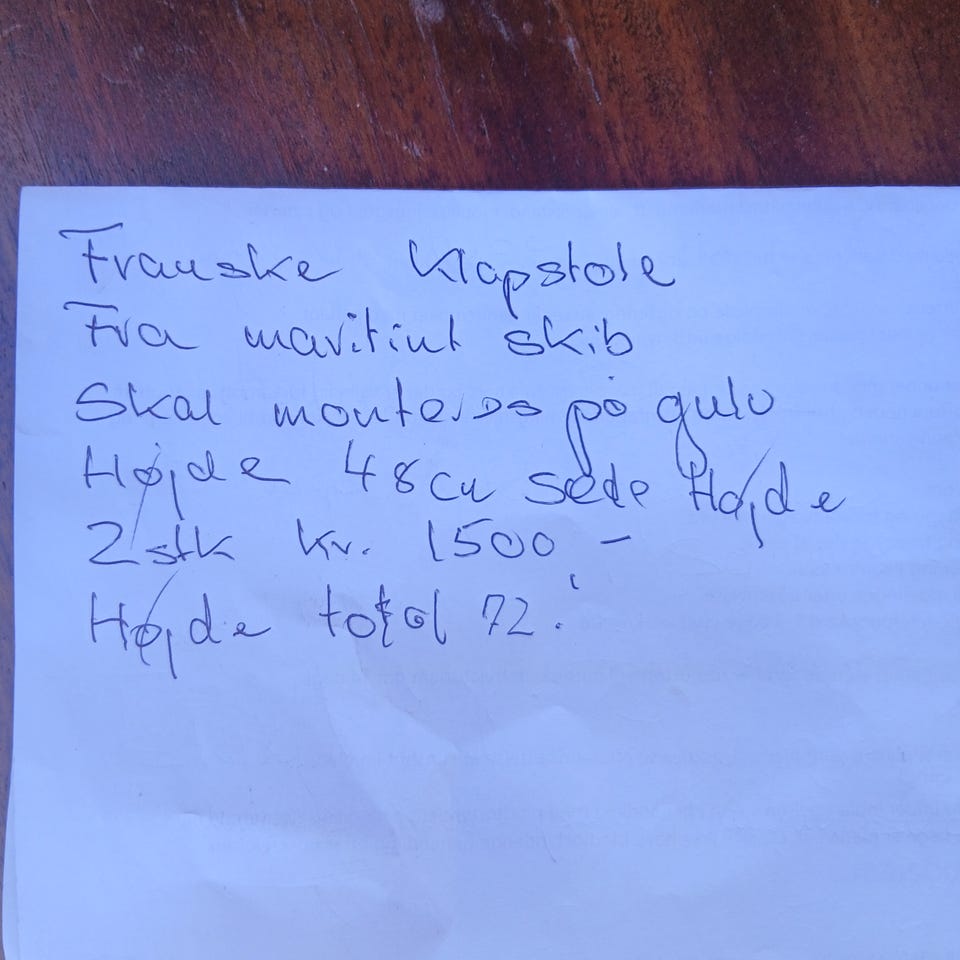 Franske Klapstole
Fra maritimt skib
Skal monteres på gulv
Højde 48 cm sæde Højde
2 stk kr. 1500 -
Højde total 72.